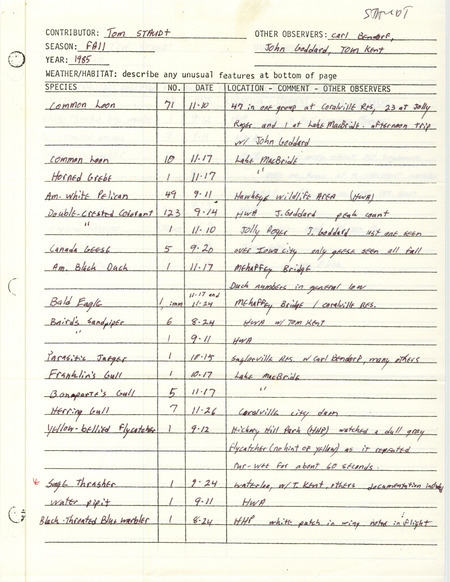 STAUDT
CONTRIBUTOR: Tom STAUDT OTHER OBSERVERS: Carl Bendorf,
SEASON: Fall John Goddard, Tom Kent
YEAR: 1985
WEATHER/HABITAT: describe any unusual features at bottom of page
SPECIES NO. DATE LOCATION - COMMENT - OTHER OBSERVERS
Common Loon 71 11-10 47 in one group at Coralville Res, 23 at Jolly
Roger and 1 at Lake MacBride. afternoon trip
w/ John Goddard
Common Loon 10 11-17 Lake MacBride
Horned Grebe 1 11-17 "
Am. White Pelican 49 9-11 Hawkeye Wildlife Area (HWA)
Double-crested Cormorant 123 9-14 HWA J. Goddard peak count
" 1 11-10 Jolly Roger J. Goddard last one seen
Canada Geese 5 9-20 over Iowa City only geese seen all fall
Am. Black Duck 1 11-17 Mehaffey Bridge
Duck numbers in general low
Bald Eagle 1, imm 11-17 and 11-24 Mehaffey Bridge / Coralville Res.
Baird's Sandpiper 6 8-24 HWA w/ Tom Kent
" 1 9-11 HWA
Parasitic Jaeger 1 10-15 Saylorville Res w/ Carl Bendorf, many others
Franklin's Gull 1 10-17 Lake MacBride
Bonaparte's Gull 5 11-17 "
Herring Gull 7 11-26 Coralville city dam
Yellow-bellied Flycatcher 1 9-12 Hickory Hill Park (HHP) watched a dull gray
flycatcher (no hint of yellow) as it repeated
pur-wee for about 60 seconds.
Sage Thrasher 1 9-24 Waterloo, w/ T. Kent, others documentation
Water pipit 1 9-11 HWA
Black-Throated Blue Warbler 1 8-24 HHP white patch in wing noted in flight